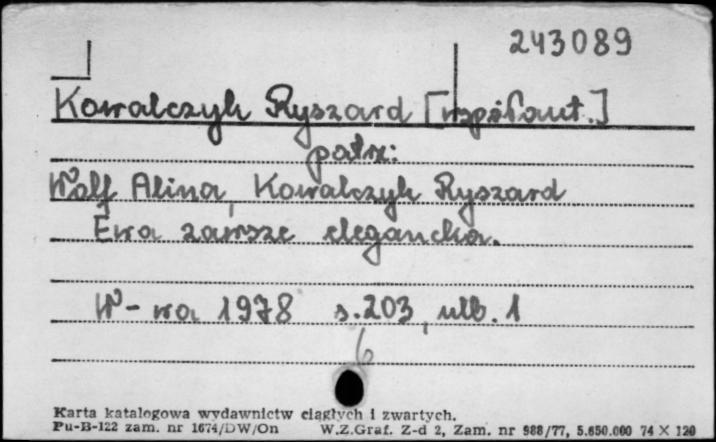 243089
Kowalczyk Ryszard [współaut.]
patrz:
Wolf Alina, Kowalczyk Ryszard
Ewa zawsze elegancka.
W-wa 1978 s.203, ulb. 1
6
Karta katalogowa wydawnictw ciągłych i zwartych.
Pu-B-122 zam. nr 1674/DW/On W.Z.Graf. Z-d 2, Zam. nr 988/77, 5.650.000 74 X 120